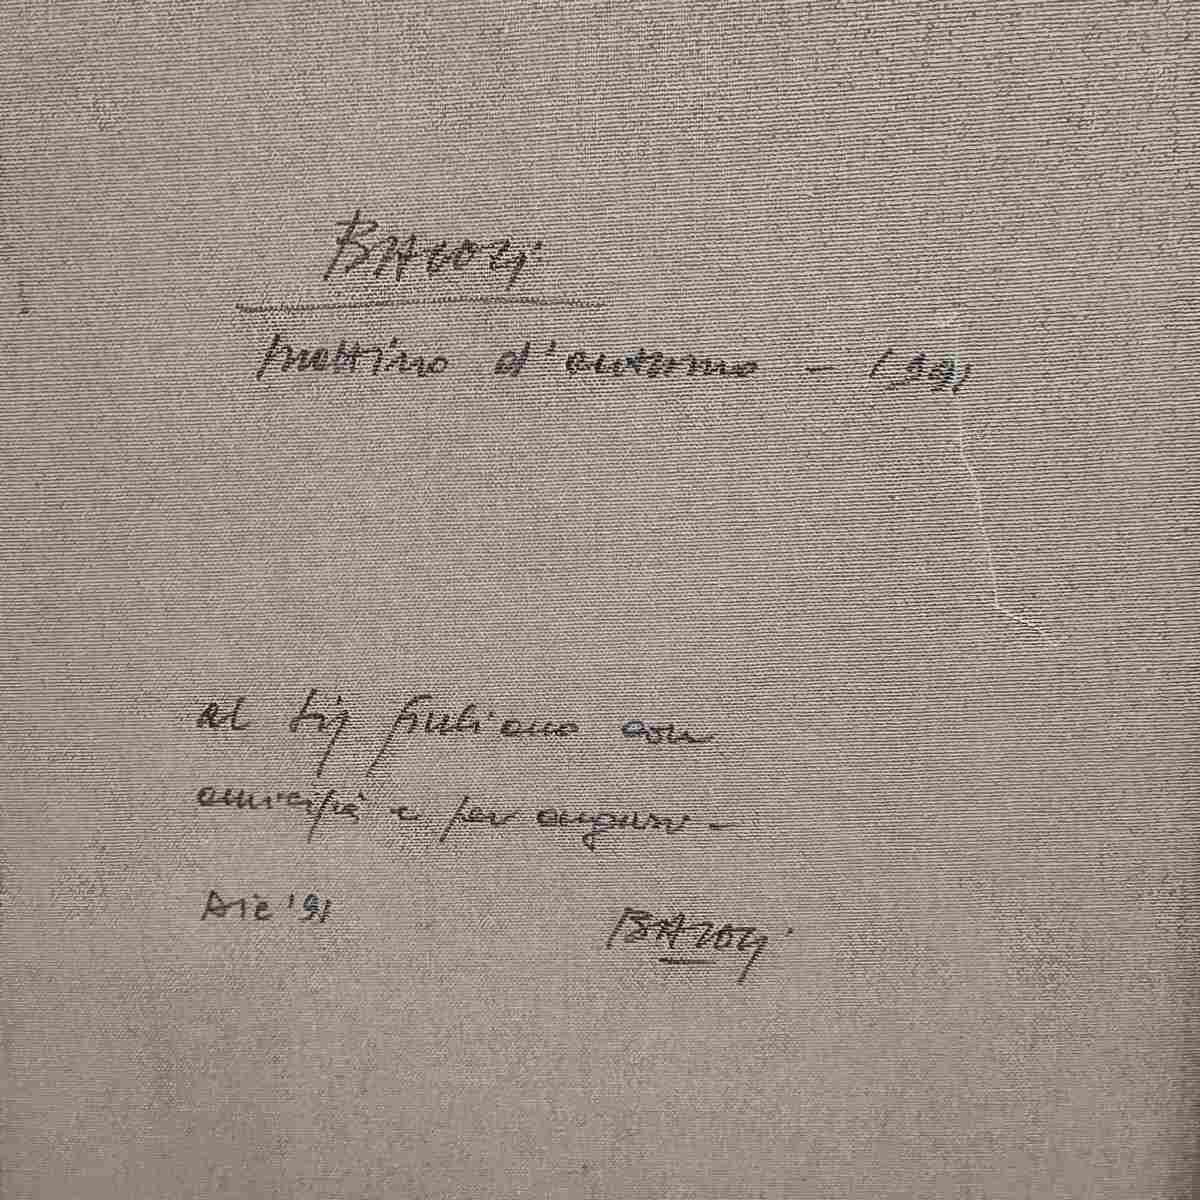 mattino d'autunno - 1991
al Sig Giuliano con
amicizia e per auguri -
Dic '91